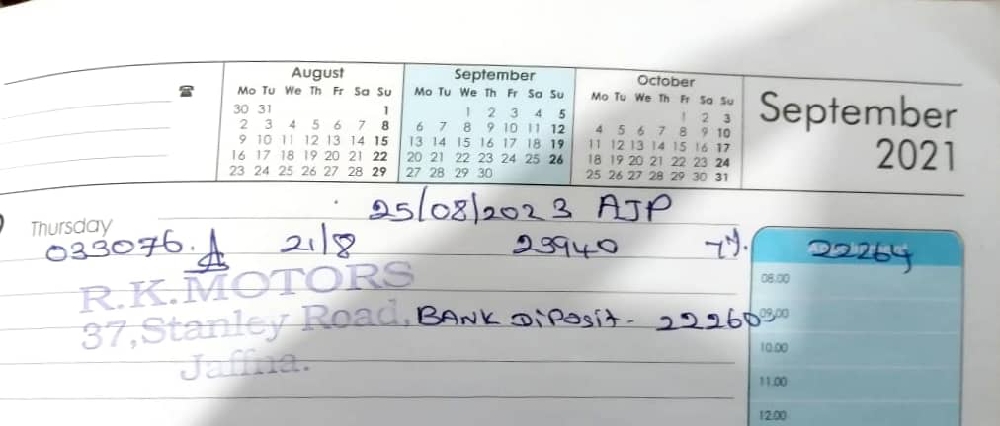 August
Mo Tu We Th Fr Sa Su
30 31 1
2 3 4 5 6 7 8
9 10 11 12 13 14 15
16 17 18 19 20 21 22
23 24 25 26 27 28 29
September
Mo Tu We Th Fr Sa Su
1 2 3 4 5
6 7 8 9 10 11 12
13 14 15 16 17 18 19
20 21 22 23 24 25 26
27 28 29 30
October
Mo Tu We Th Fr Sa Su
1 2 3
4 5 6 7 8 9 10
11 12 13 14 15 16 17
18 19 20 21 22 23 24
25 26 27 28 29 30 31
September
2021
25/08/2023 AJP
Thursday
033076. A 21/8 23940 7%. 22264
08.00
R.K.MOTORS
37,Stanley Road,
Jaffna.
BANK DiPosit - 22260
09.00
10.00
11.00
12.00